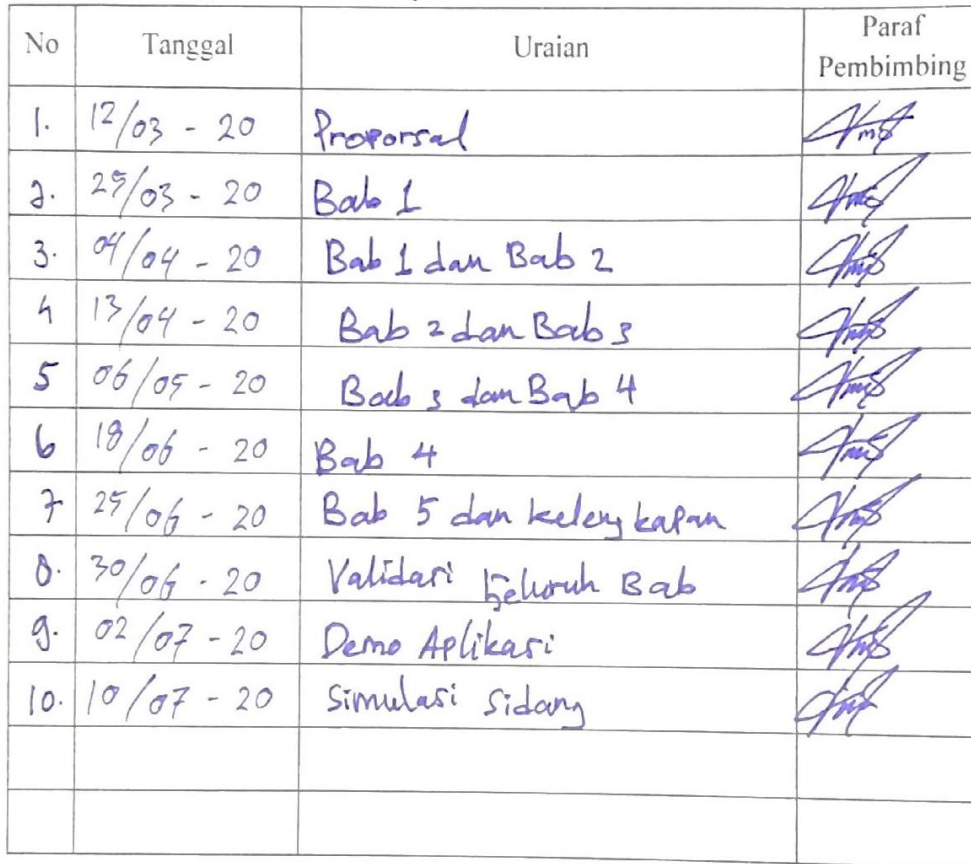 No Tanggal Uraian Paraf Pembimbing
1. 12/03 - 20 Proporsal
2. 25/03 - 20 Bab 1
3. 04/04 - 20 Bab 1 dan Bab 2
4 13/04 - 20 Bab 2 dan Bab 3
5 06/05 - 20 Bab 3 dan Bab 4
6 18/06 - 20 Bab 4
7 25/06 - 20 Bab 5 dan kelengkapan
8. 30/06 - 20 Validasi Seluruh Bab
9. 02/07 - 20 Demo Aplikasi
10. 10/07 - 20 Simulasi Sidang